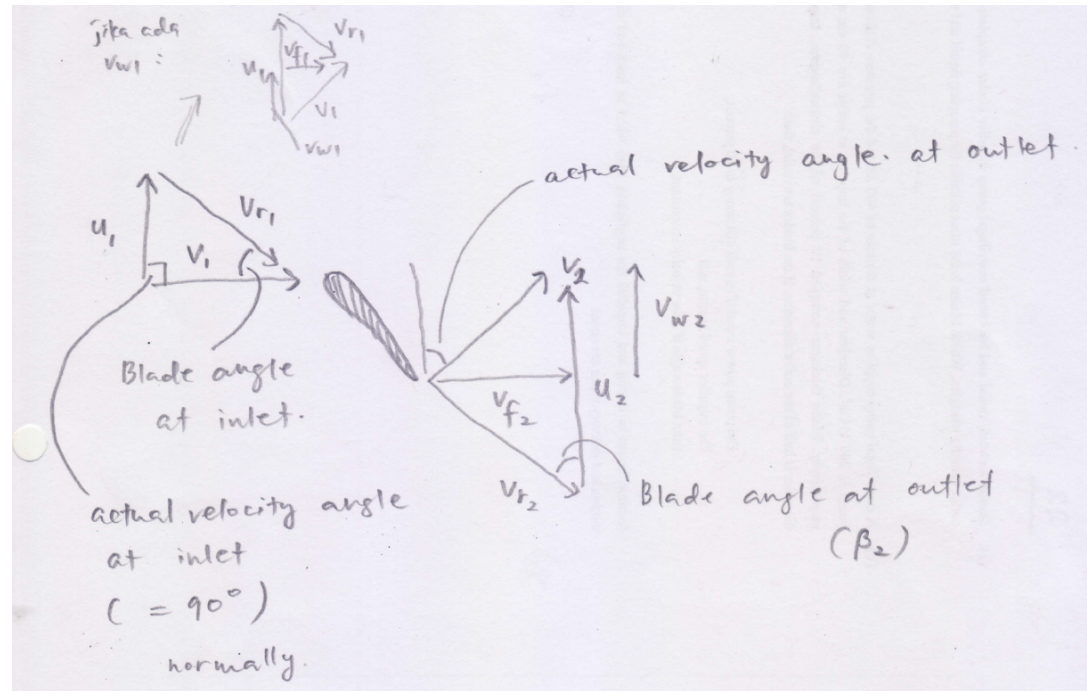 jika ada
Vw1 :
Vr1
Vf1
u1
V1
Vw1
actual velocity angle. at outlet.
u1
Vr1
V1
V2
Vw2
Blade angle
at inlet.
Vf2
u2
Vr2
Blade angle at outlet
(β2)
actual velocity angle
at inlet
( = 90°)
normally.